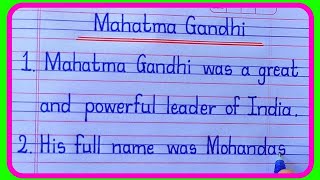 Mahatma Gandhi
1. Mahatma Gandhi was a great
and powerful leader of India.
2. His full name was Mohandas